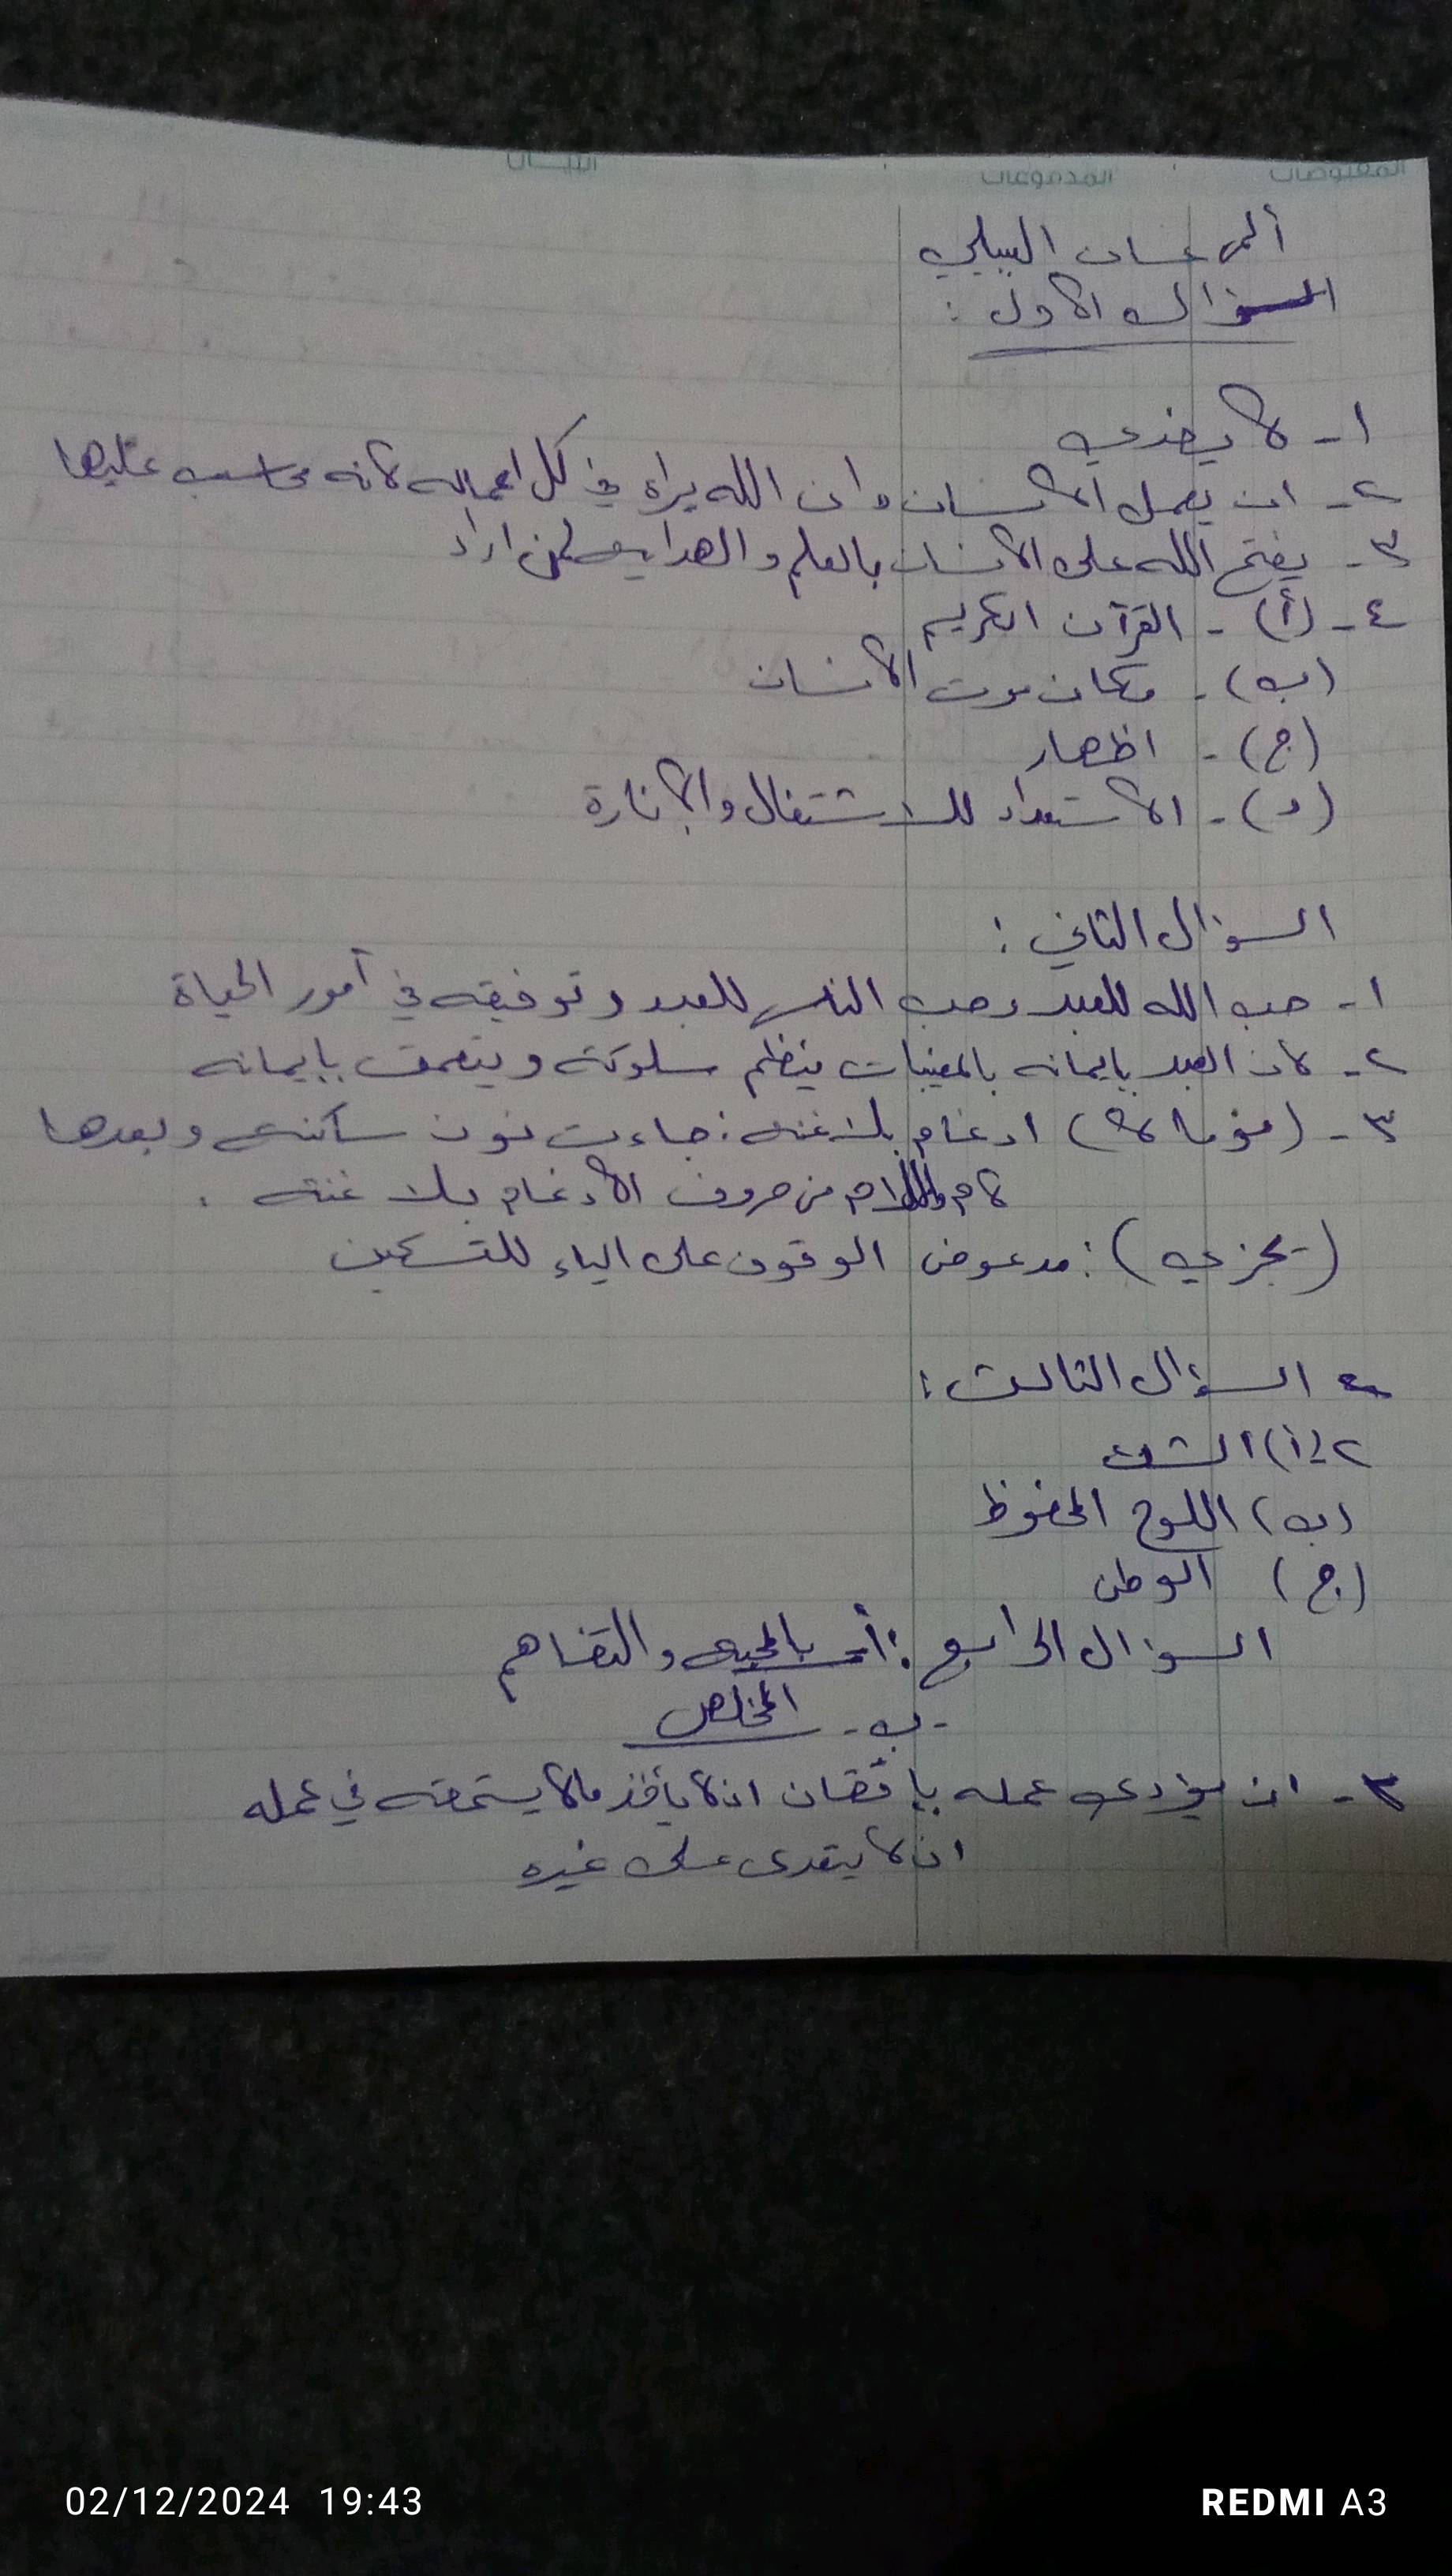 المقبوضات المدفوعات البيـــان
ألمى غسان البيلي
السؤال الأول :
١- لا يغذي
٢- ان يعمل الانسان وان الله يراه في كل اعماله لأنه محاسب عليها
٣- يفتح الله على الانسان بالعلم والهداية لمن اراد
٤- (أ) - القرآن الكريم
(ب) - مكان موت الانسان
(ج) - اظهار
(د) - الاستعداد للاشتعال والإنارة
السؤال الثاني :
١- حب الله للعبد وحب الناس للعبد وتوفيقه في أمور الحياة
٢- لأن العبد بايمانه بالمغيبات ينظم سلوكه ويتعمق بإيمانه
٣- ( ) ادغام بلا غنة : جاءت نون ساكنة وبعدها
لام واللام من حروف الادغام بلا غنة .
(تجزي) : مد عوض الوقوف على الياء للتسكين
السؤال الثالث :
٢- (أ)
(ب) اللوح المحفوظ
(ج) الوطن
السؤال الرابع : أ- بالمحبة والتفاهم
- ب - المخلص
٣- ان يؤدي عمله بإتقان ان لا يأخذ مالا يستحقه في عمله
ان لا يتعدى على غيره
02/12/2024 19:43
REDMI A3